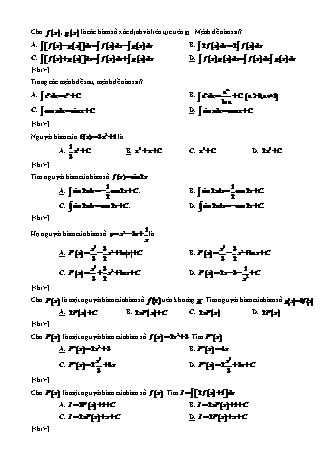 Cho f(x), g(x) là các hàm số xác định và liên tục trên ℝ. Mệnh đề nào sai?
A. ∫[f(x)−g(x)]dx=∫f(x)dx−∫g(x)dx B. ∫2f(x)dx=2∫f(x)dx
C. ∫[f(x)+g(x)]dx=∫f(x)dx+∫g(x)dx D. ∫f(x)g(x)dx=∫f(x)dx.∫g(x)dx
[<br>]
Trong các mệnh đề sau, mệnh đề nào sai?
A. ∫eˣdx=eˣ+C B. ∫aˣdx=aˣ/lna+C (a>0,a≠1)
C. ∫cosxdx=sinx+C D. ∫sinxdx=cosx+C
[<br>]
Nguyên hàm của f(x)=3x²+1 là
A. 1/3x³+C B. x³+x+C C. x³+C D. 3x³+C
[<br>]
Tìm nguyên hàm của hàm số f(x)=sin2x
A. ∫sin2xdx=−1/2cos2x+C. B. ∫sin2xdx=1/2cos2x+C.
C. ∫sin2xdx=cos2x+C. D. ∫sin2xdx=−cos2x+C.
[<br>]
Họ nguyên hàm của hàm số y=x²−3x+1/x là
A. F(x)=x³/3−3/2x²+ln|x|+C B. F(x)=x³/3−3/2x²+lnx+C
C. F(x)=x³/3+3/2x²+lnx+C D. F(x)=2x−3−1/x²+C
[<br>]
Cho F(x) là một nguyên hàm của hàm số f(x) trên khoảng K. Tìm nguyên hàm của hàm số g(x)=2f(x)
A. 2F(x)+C B. 2xF(x)+C C. 2xF(x) D. 2F(x)
[<br>]
Cho F(x) là một nguyên hàm của hàm số f(x)=2x²+3. Tìm F'(x)
A. F'(x)=2x²+3 B. F'(x)=4x
[<br>]
Cho F(x) là một nguyên hàm của hàm số f(x). Tìm I=∫[2f(x)+1]dx
A. I=2F(x)+1+C B. I=2xF(x)+1+C
C. I=2xF(x)+x+C D. I=2F(x)+x+C
[<br>]